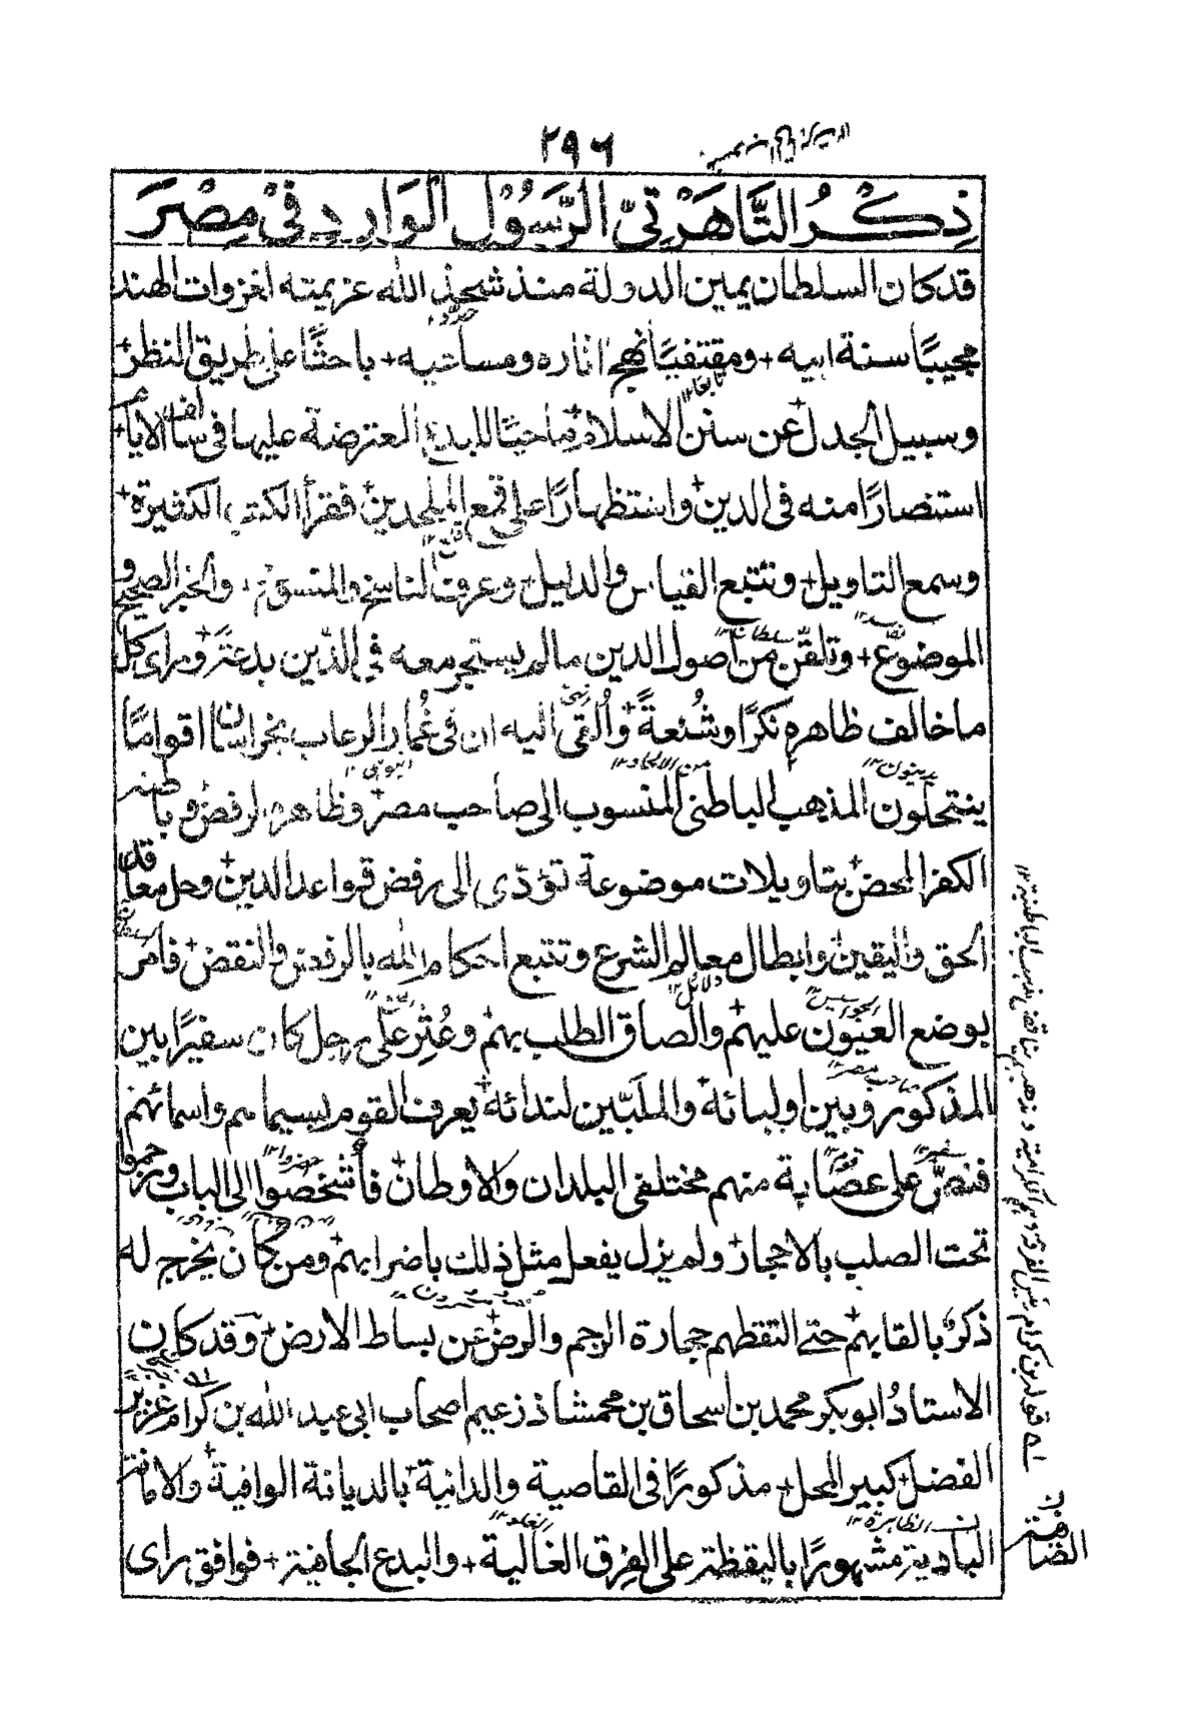 ٢٩٦
ذِكْرُ التَّاهَرْتِيّ الرَّسُوْلِ الْوَارِدِ فِيْ مِصْرَ
قد كان السلطان يمين الدولة منذ شحذ الله عزيمته لغزوات الهند
مجيبًا سنة ابيه + ومقتفيًا نهج اثاره ومساعيه + باحثًا على طريق النظر +
وسبيل الجدل عن سنن الاسلام + ماحيًا للبدع المعترضة عليها فى سالف الايام +
استنصارًا منه فى الدين + واستظهارًا على قمع الملحدين + فقرأ الكتب الكثيرة +
وسمع التاويل + وتتبع القياس والدليل + وعرف الناسخ والمنسوخ + والخبر الصحيح و
الموضوع + وتلقّن من اصول الدين مالم يستجز معه فى الدّين بدعة + وراى كل
ما خالف ظاهره نكرًا وشُنعةً + واُلقى اليه ان فى غُمار الرعاب بخراسان اقوامًا
ينتحلون المذهب الباطنى المنسوب الى صاحب مصر + وظاهره الرفض وباطنه
الكفر المحض + بتاويلات موضوعة تؤدّى الى رفض قواعد الدين + وحل معاقد
الحق واليقين + وابطال معالم الشرع وتتبع احكام الله بالرفض والنقض + فامر
بوضع العيون عليهم + والصاق الطلب بهم + وعُثِر على رجل كان سفيرًا بين
المذكور وبين اوليائه + والملَبّين لندائه + يعرف القوم بسيماهم واسمائهم
فنصّ على عصابة منهم مختلفى البلدان والاوطان + فاُشخصوا الى الباب ورجموا
تحت الصلب بالاحجار + ولم يزل يفعل مثل ذلك باضرابهم + ومن كان يخرج له
ذكرٌ بالقابهم + حتى التقطهم حجارة الرجم والرض عن بساط الارض + وقد كان
الاستاذُ ابو بكر محمد بن اسحاق بن محمشاذ زعيم اصحاب ابى عبد الله بن كرام غزير
الفضل + كبير المحل + مذكورًا فى القاصية والدانية + بالديانة الوافية + والامانة
البادية + مشهورًا باليقظة على الفرق الغالية + والبدع الجافية + فوافق راى